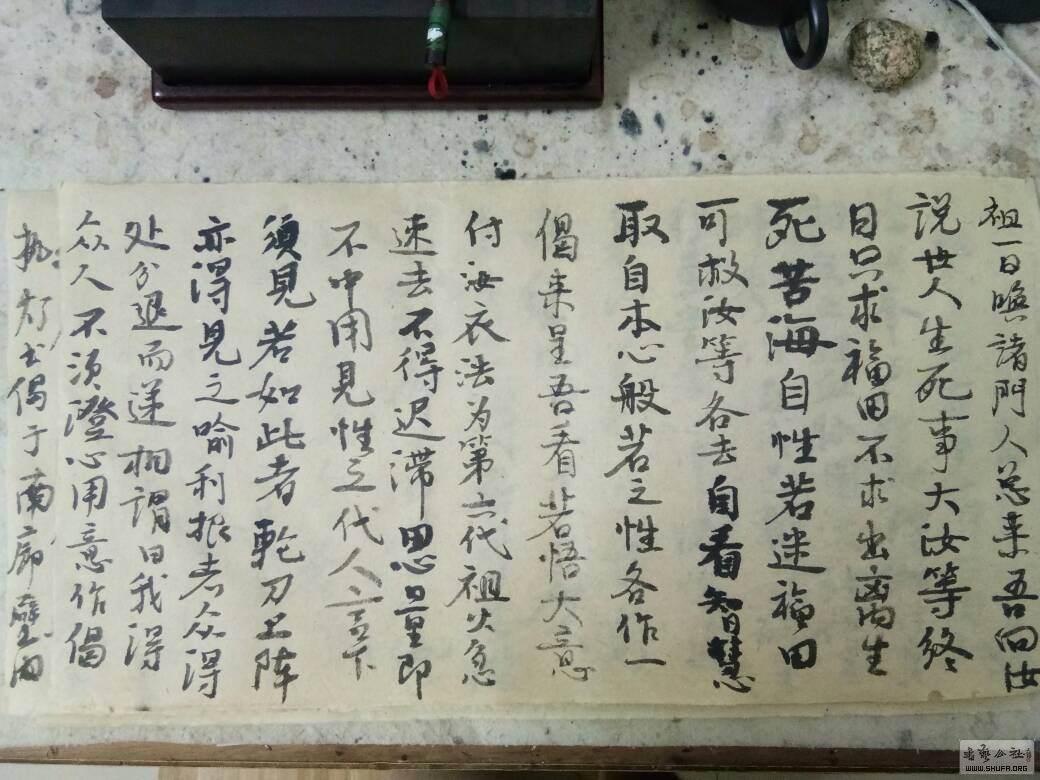 祖一日喚諸門人总来吾向汝
説世人生死事大汝等終
日只求福田不求出离生
死苦海自性若迷福田
可救汝等各去自看智慧
取自本心般若之性各作一
偈来呈吾看若悟大意
付汝衣法为第六代祖火急
速去不得迟滞思量即
不中用見性之代人言下
須見若如此者輪刀上阵
亦得見之喻利根者众得
处分退而递相謂曰我得
众人不须澄心用意作偈
执灯书偈于南廊壁间
书艺公社
WWW.SHUFA.ORG